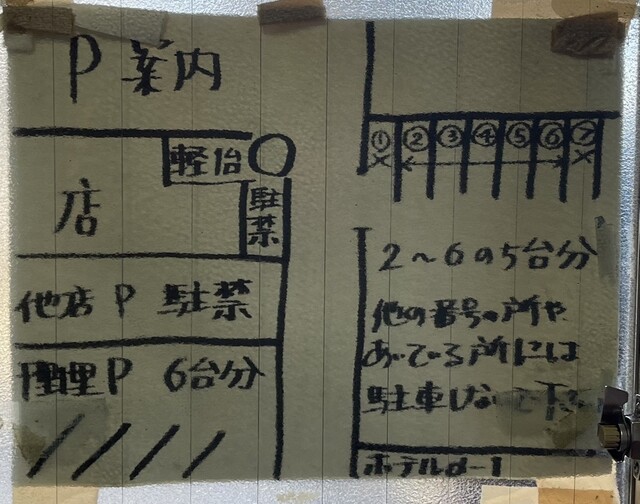 P 案内
軽1台
駐禁
店
他店 P 駐禁
P 6台分
① ② ③ ④ ⑤ ⑥ ⑦
× ×
2〜6の5台分
他の番号の所や
あいている所には
駐車しないで下さい
ホテルα-1